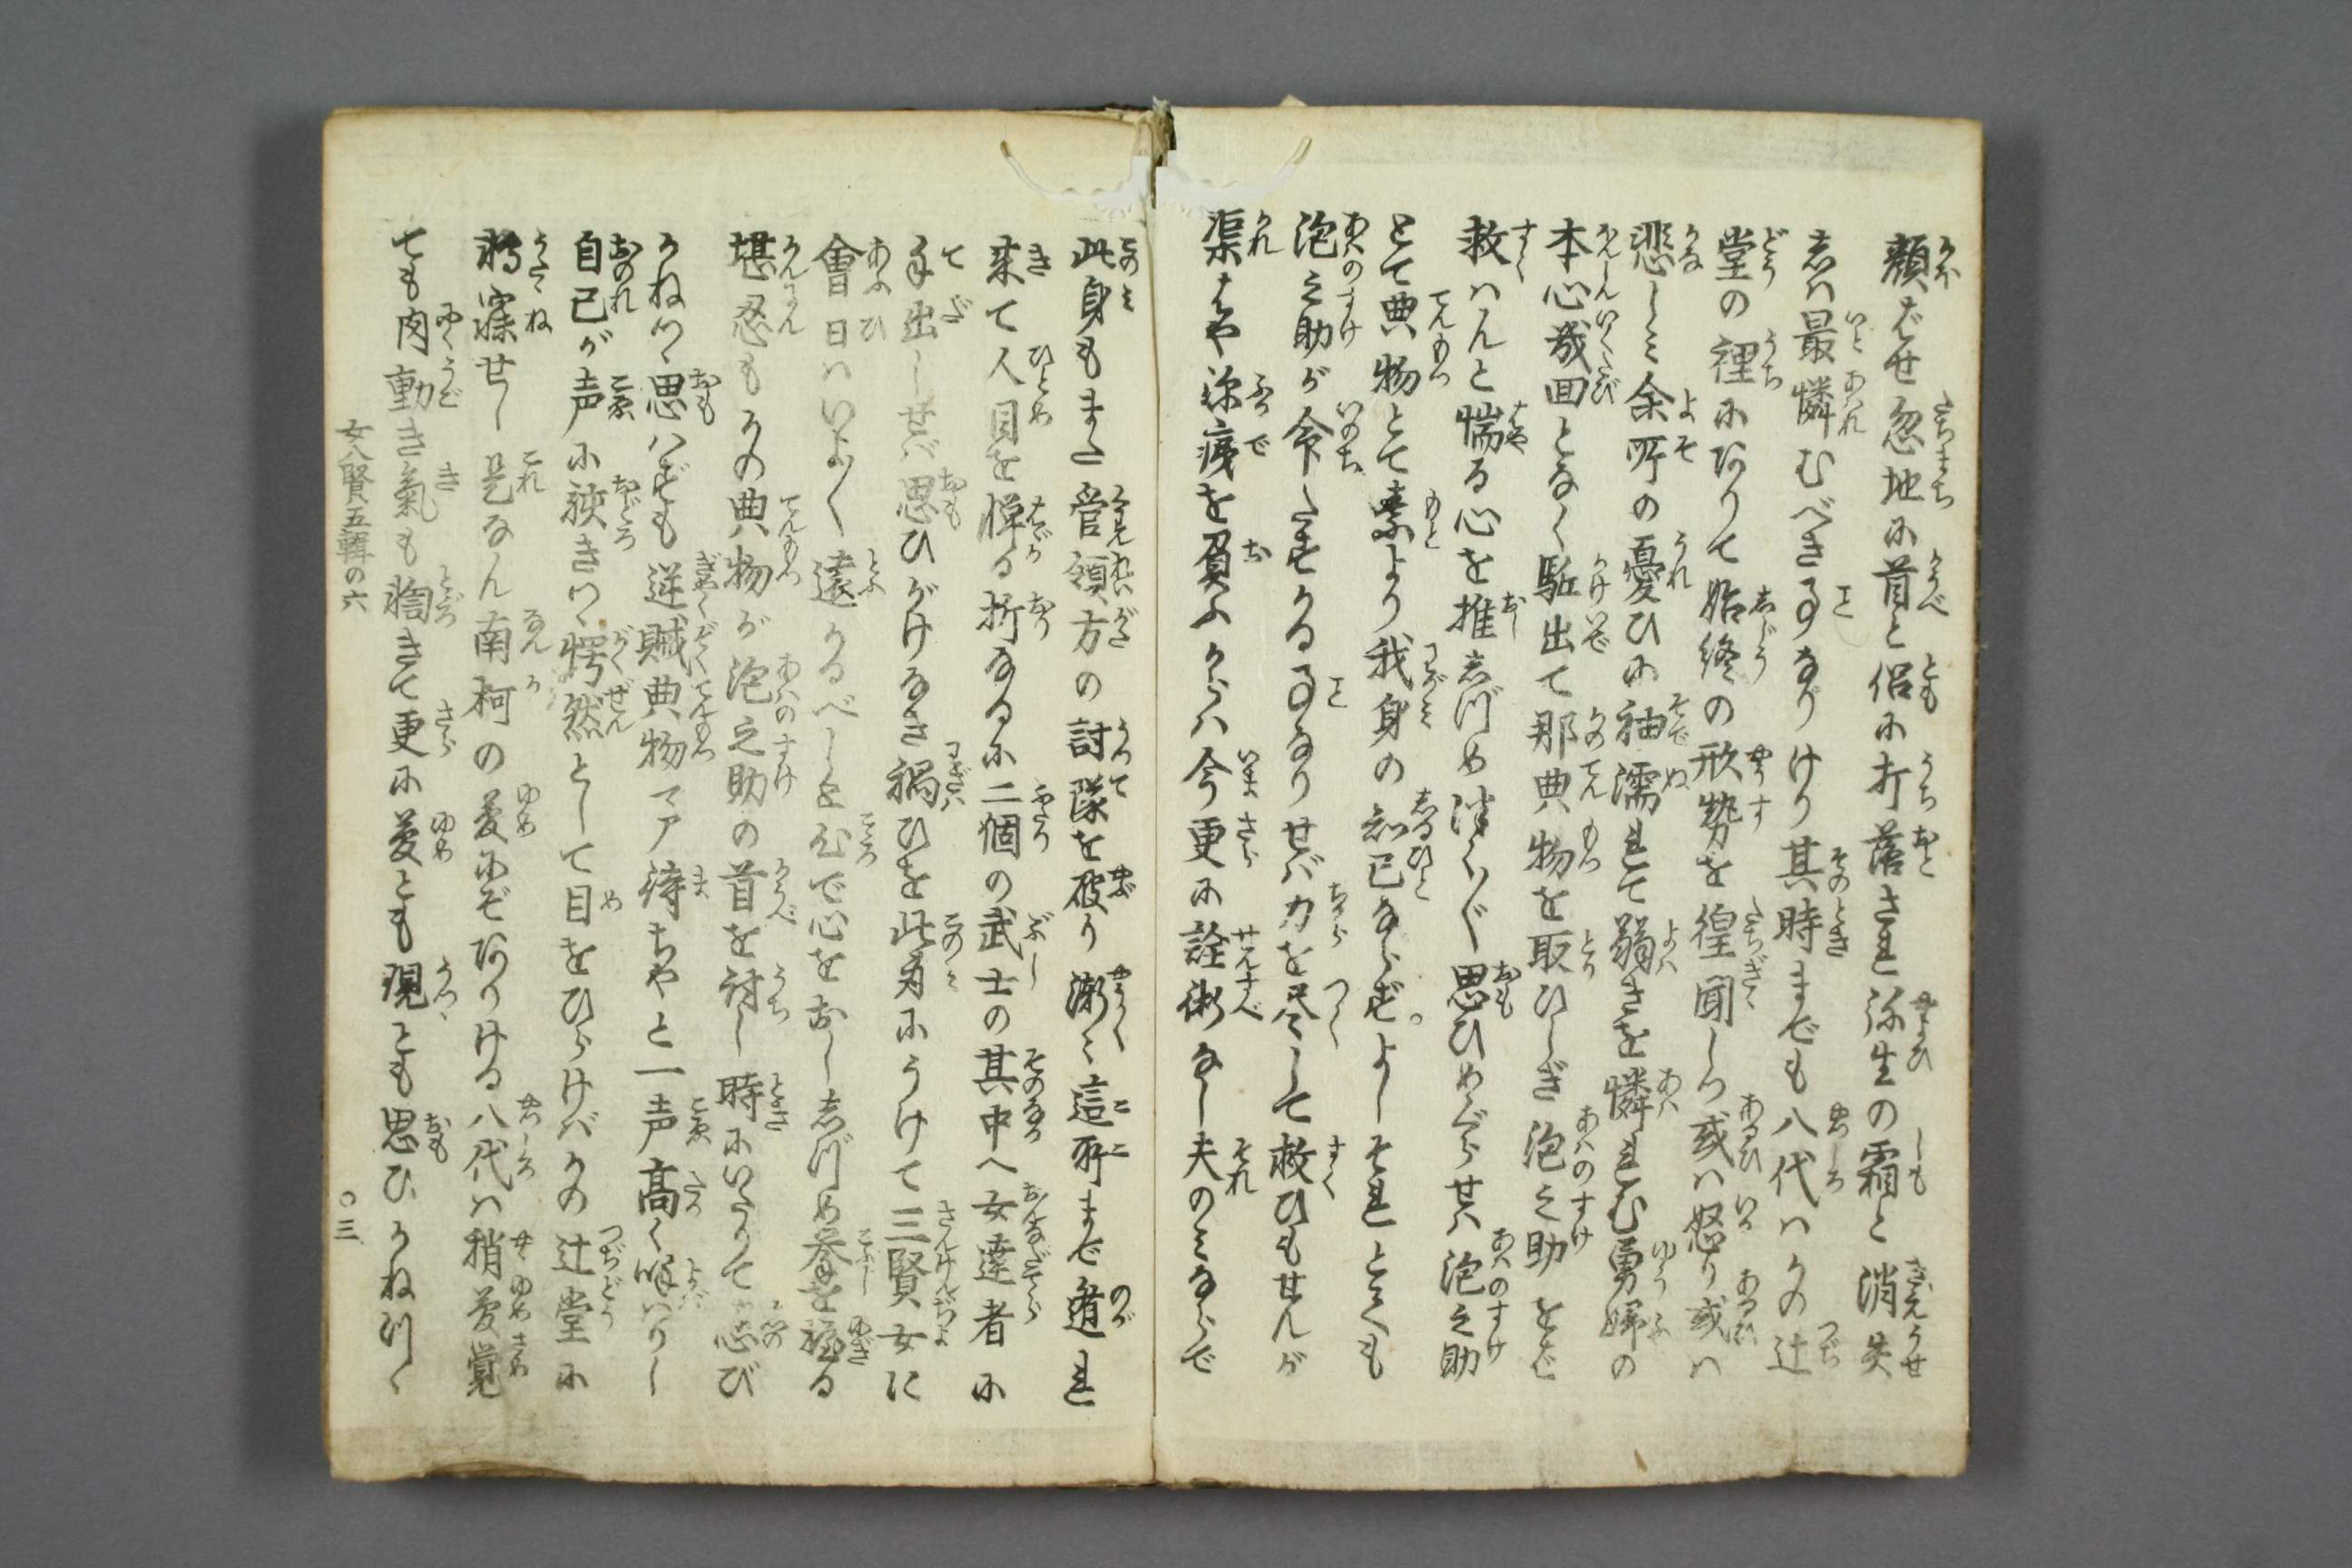 顔ばせ忽地に首と侶に打落され弥生の霜と消失
しは最憐むべき事なりけり其時までも八代はかの辻
堂の裡にありて始終の形勢を徨聞しつ或は怒り或は
悲しみ余所の憂ひに袖濡れて弱きを憐れむ勇婦の
本心幾回となく駈出て那典物を取ひしぎ泡之助をば
救はんと惴る心を推しづめ消らく思ひめぐらせは泡之助
とて典物とて素より我身の知己ならず。よしそれとても
泡之助が命たすかる事なりせば力を尽して救ひもせんが
渠はや深痍を負ふからは今更に詮術なし夫のみならで
此身もまた管領方の討隊を破り漸々這所まで遁れ
来て人目を憚る折なるに二個の武士の其中へ女達者に
手出しせば思ひがけなき禍ひを此身にうけて三賢女に
會日はいよ〳〵遠かるべしと心で心をおししづめ拳を握る
堪忍もかの典物が泡之助の首を討し時にいたりて忍び
かねつゝ思はずも逆賊典物マア待ちやと一声高く喚はりし
自己が声に𩗗きつゝ愕然として目をひらけばかの辻堂に
轉寐せし是なん南柯の夢にぞありける八代は稍夢覚
ても肉動き氣も胸きて更に夢とも現とも思ひかねつゝ
女八賢五輯の六
〇三